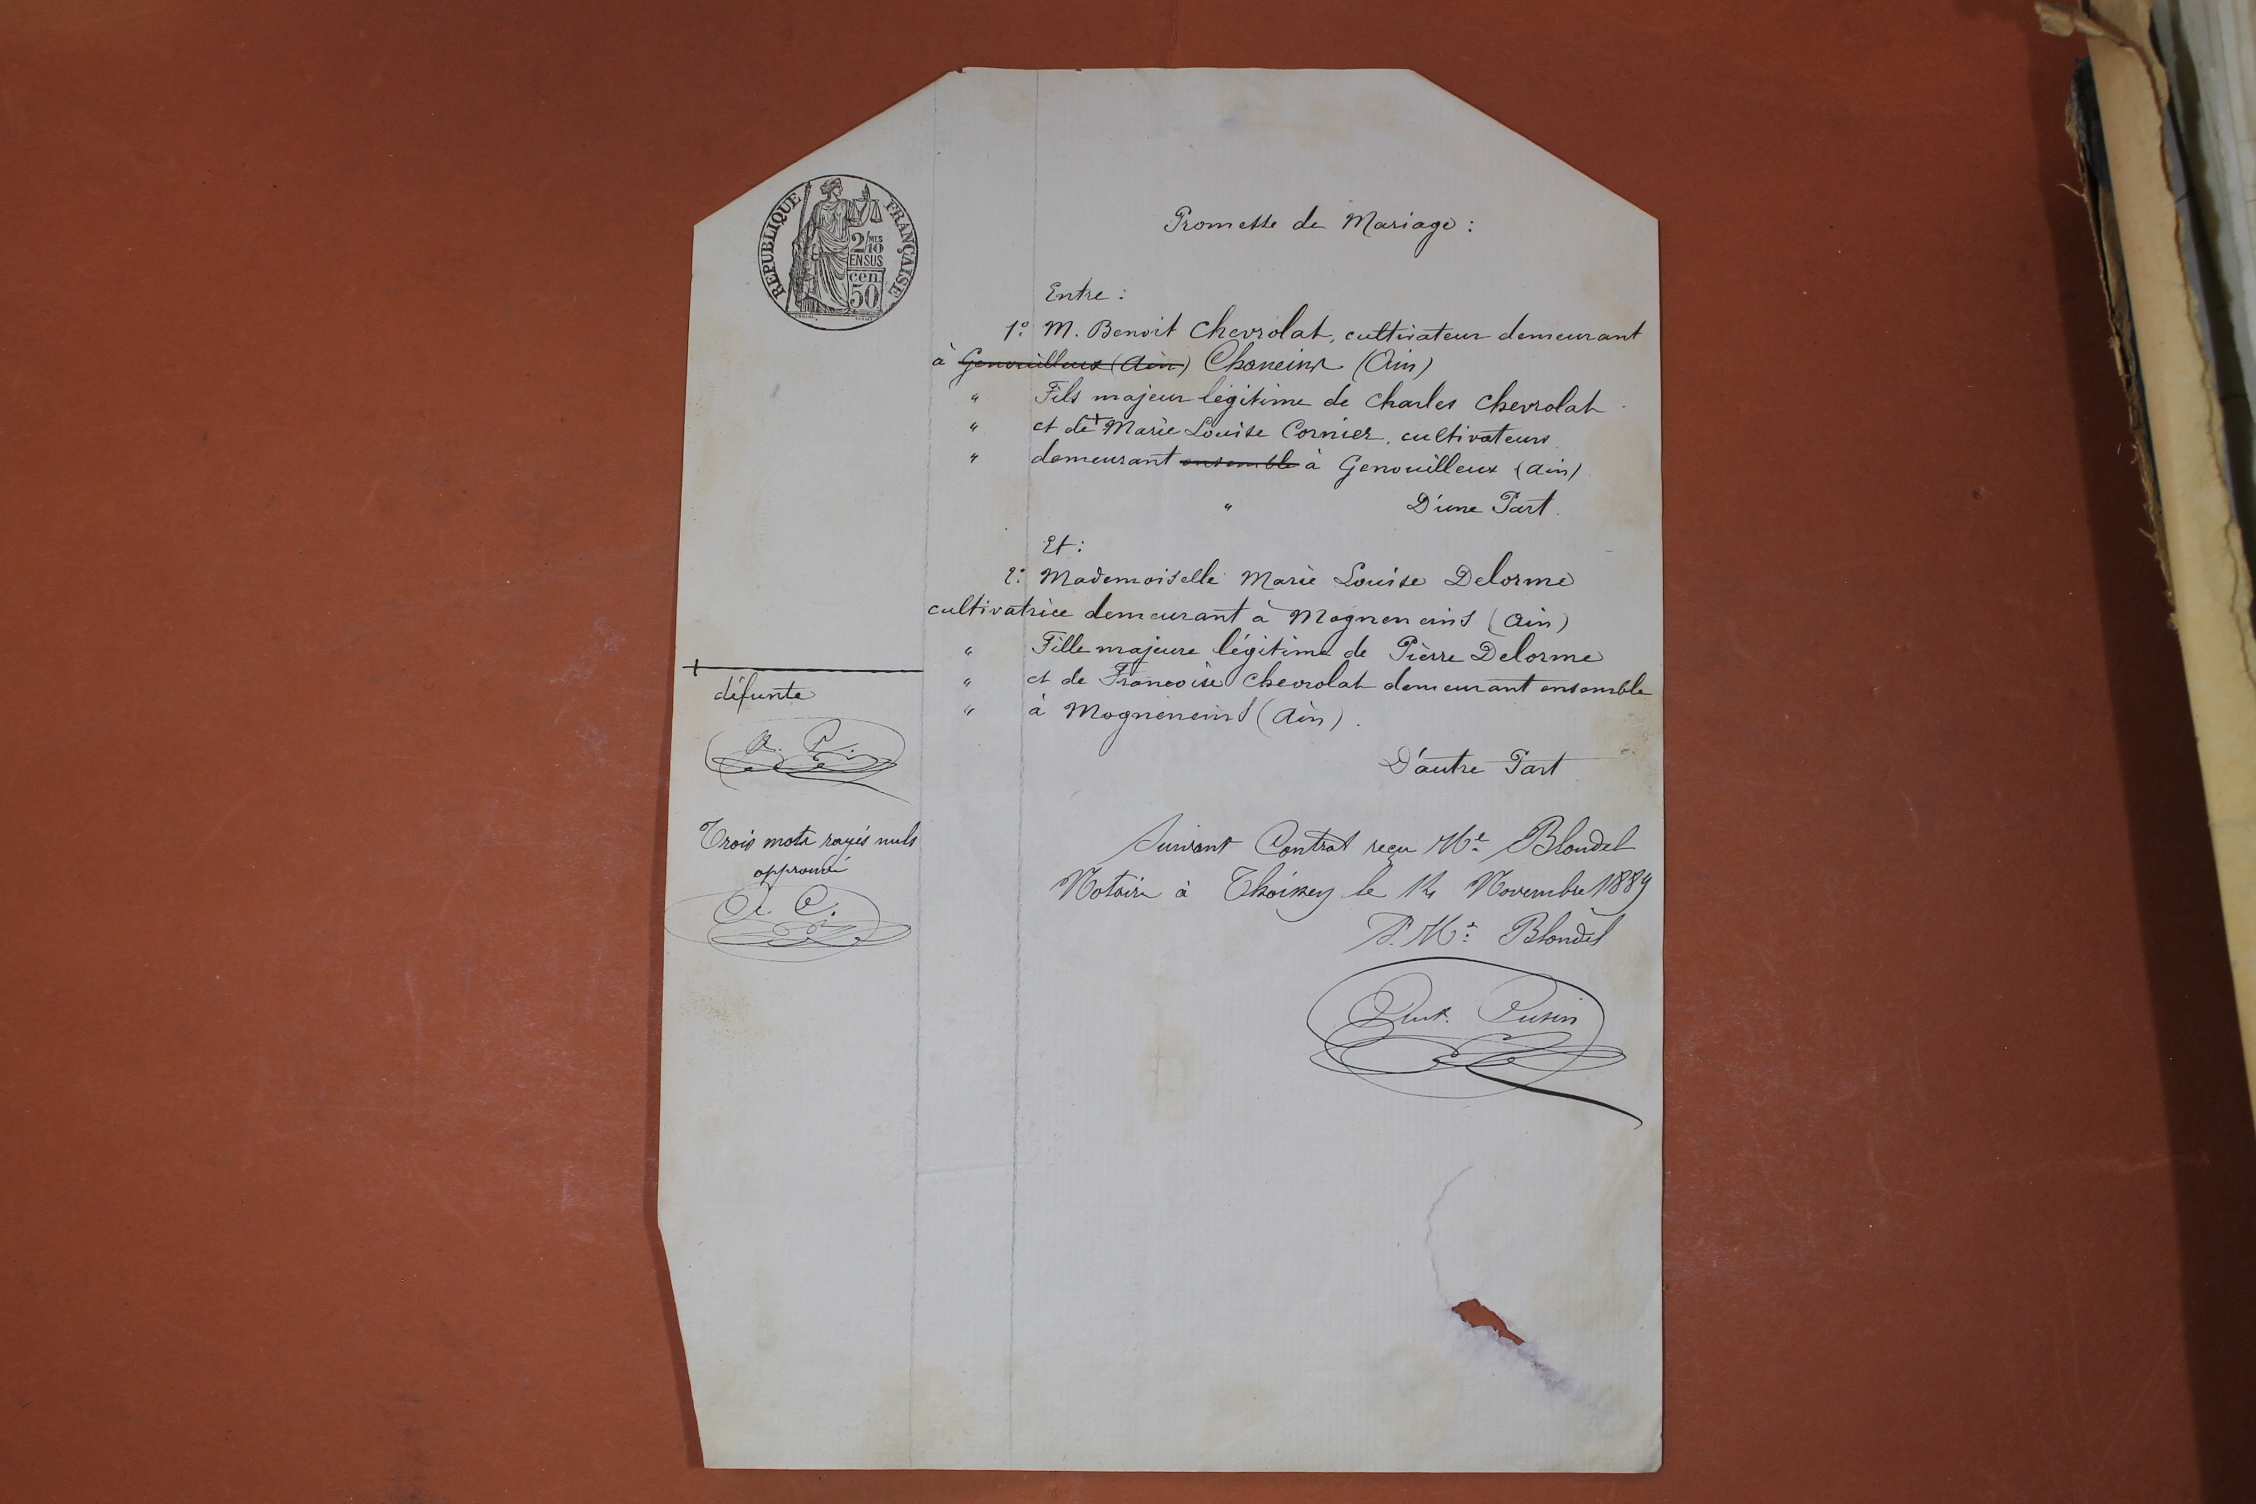 RÉPUBLIQUE FRANÇAISE
2/10 MES
EN SUS
cen.
50
Promesse de Mariage :
Entre :
1º M. Benoit Chevrolat, cultivateur demeurant
à Genouilleux (Ain) Chaneins (Ain)
" Fils majeur légitime de Charles Chevrolat
" et de + Marie Louise Cornier, cultivateurs
" demeurant ensemble à Genouilleux (Ain)
" D'une Part.
Et :
2º Mademoiselle Marie Louise Delorme
cultivatrice demeurant à Mogneneins (Ain)
" Fille majeure légitime de Pierre Delorme
" et de Francoise Chevrolat demeurant ensemble
" à Mogneneins (Ain).
D'autre Part
Suivant Contrat reçu Me Blondel
Notaire à Thoissey le 14 Novembre 1889
P. Me Blondel
+
défunte
Trois mots rayés nuls
approuvé